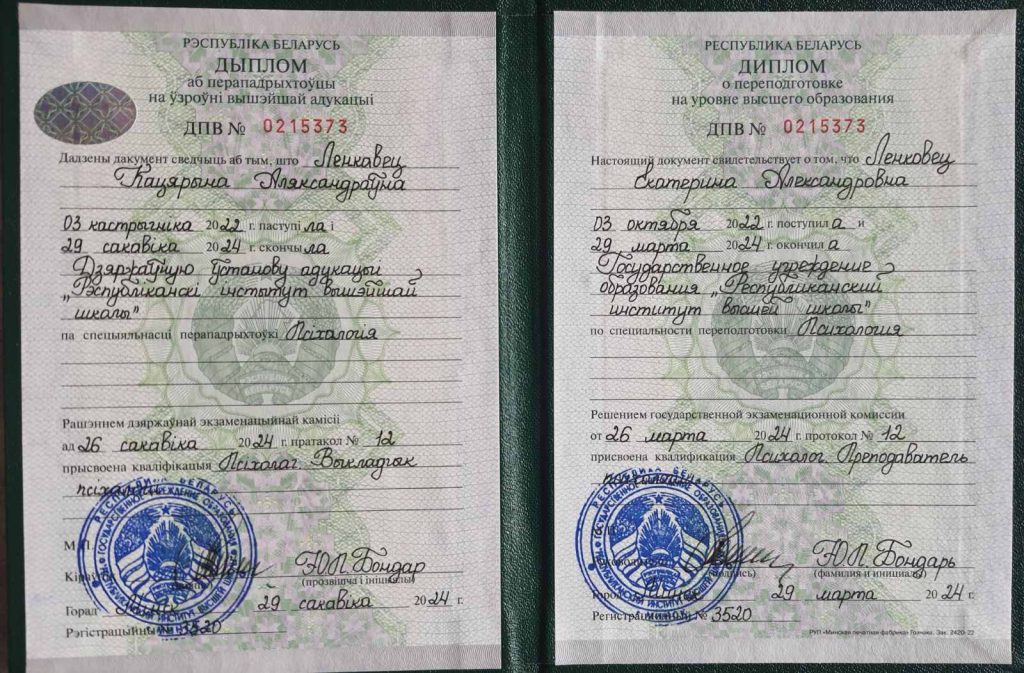 РЭСПУБЛІКА БЕЛАРУСЬ
ДЫПЛОМ
аб перападрыхтоўцы
на ўзроўні вышэйшай адукацыі
ДПВ № 0215373
Дадзены дакумент сведчыць аб тым, што Ленкавец
Кацярына Аляксандраўна
03 кастрычніка 2022 г. паступіла і
29 сакавіка 2024 г. скончыла
Дзяржаўную ўстанову адукацыі
„Рэспубліканскі інстытут вышэйшай
школы"
па спецыяльнасці перападрыхтоўкі Псіхалогія
Рашэннем дзяржаўнай экзаменацыйнай камісіі
ад 26 сакавіка 2024 г. пратакол № 12
прысвоена кваліфікацыя Псіхолаг. Выкладчык
псіхалогіі
М.П.
Ю.П. Бондар
(прозвішча і ініцыялы)
Горад Мінск 29 сакавіка 2024 г.
Рэгістрацыйны № 3520
РЕСПУБЛИКА БЕЛАРУСЬ
ДИПЛОМ
о переподготовке
на уровне высшего образования
ДПВ № 0215373
Настоящий документ свидетельствует о том, что Ленковец
Екатерина Александровна
03 октября 2022 г. поступила и
29 марта 2024 г. окончила
Государственное учреждение
образования „Республиканский
институт высшей школы"
по специальности переподготовки Психология
Решением государственной экзаменационной комиссии
от 26 марта 2024 г. протокол № 12
присвоена квалификация Психолог. Преподаватель
психологии
Руководитель Ю.П. Бондарь
(подпись) (фамилия и инициалы)
Город Минск 29 марта 2024 г.
Регистрационный № 3520
РУП «Минская печатная фабрика» Гознака. Зак. 2420-22